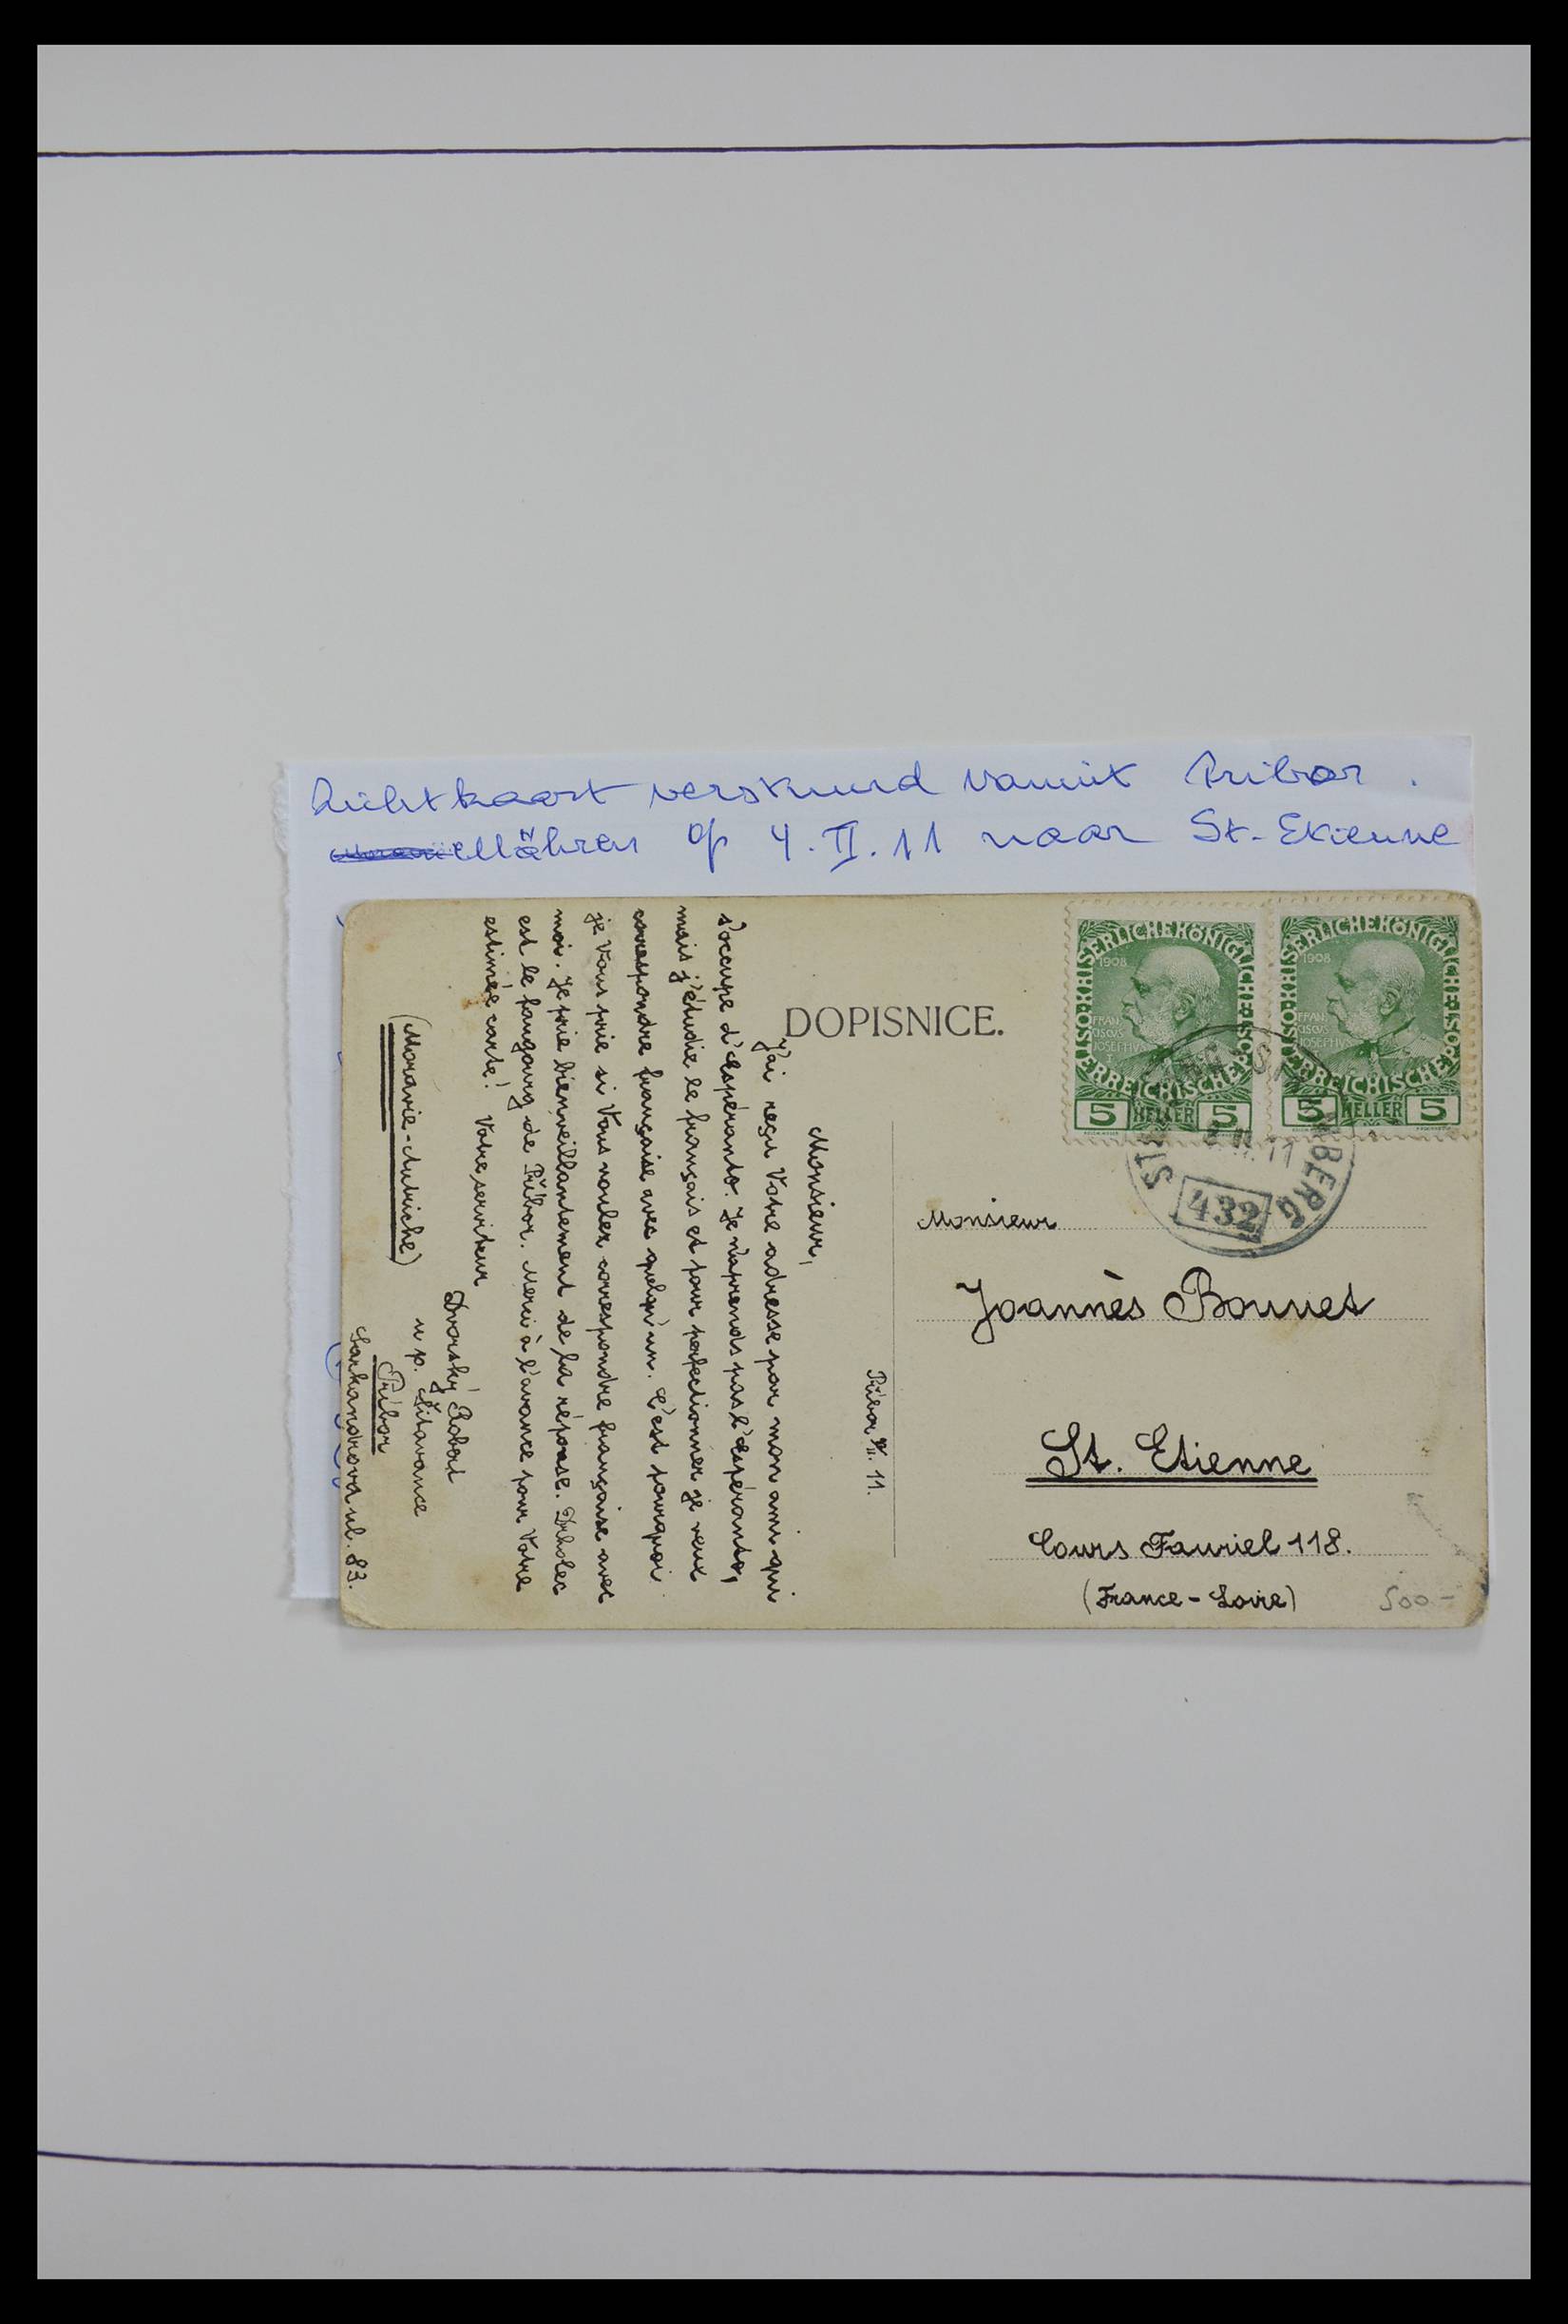 Lichtkaart verstuurd vanuit Pribor.
Mähren op 4.II.11 naar St-Etienne
DOPISNICE.
KAISERLICHE KÖNIGLICHE ÖSTERREICHISCHE POST
1908
FRAN
CISCVS
JOSEPHVS
I
5 HELLER 5
KAISERLICHE KÖNIGLICHE ÖSTERREICHISCHE POST
1908
FRAN
CISCVS
JOSEPHVS
5 HELLER 5
11
BERG
432
Příbor 4/II. 11.
Monsieur,
J'ai reçu Votre adresse par mon ami qui
s'occupe d'esperanto. Je n'aprends pas l'esperanto,
mais j'étudie le français et pour perfectionner je veux
correspondre française avec quelqu'un. C'est pourquoi
je Vous prie si Vous voulez correspondre française avec
moi. Je prie bienveillantement de la réponse. Drholec
est le faugourg de Příbor. Merci à l'avance pour Votre
estimée carte! Votre serviteur
Dvorský Robert
u p. Šitavance
Příbor
Sarkandrova ul. 83.
(Moravie-Autriche)
Monsieur
Joannès Bonnet
St. Etienne
Cours Fauriel 118.
(France - Loire)
500.-